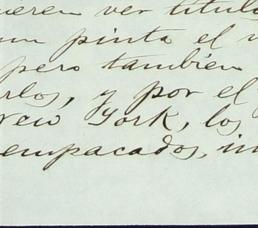 ueren ver titulo
un pinta el v
pero también
rlos, y por el
New York, los
empacados, in